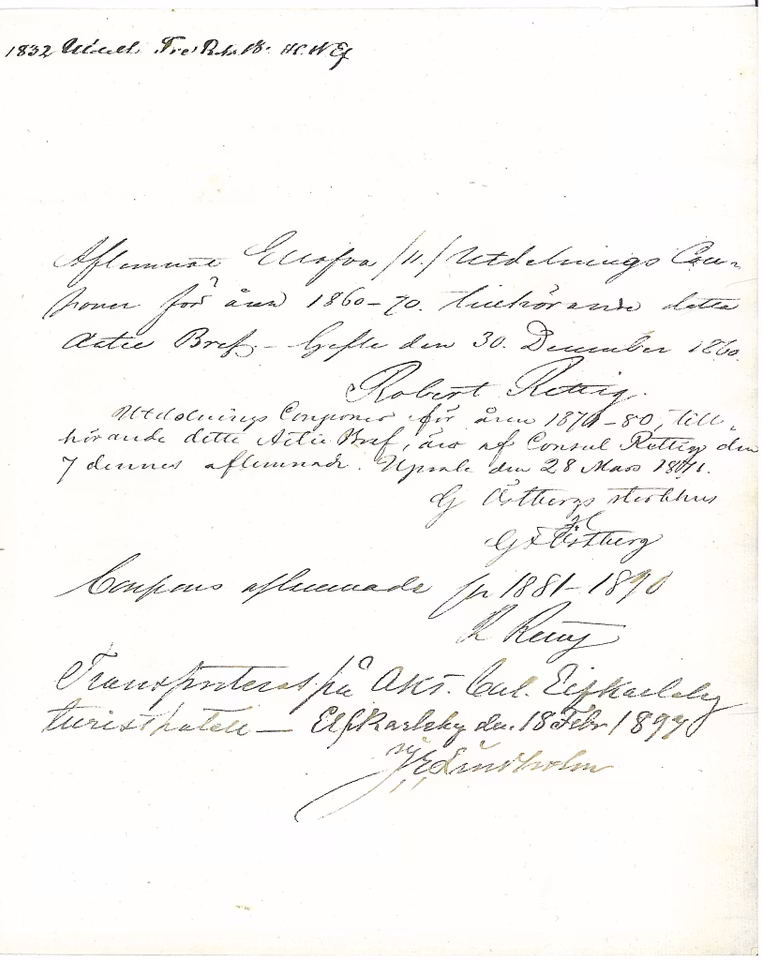 1832
Aflemnat Ellofva /11./ Utdelnings Cou-
poner för åren 1860-70. tillhörande detta
Actie Bref. – Gefle den 30. December 1860.
Robert Rettig.
Utdelnings Couponer för åren 1871-80, till-
hörande detta Actie Bref, äro af Consul Rettig den
7 dennes aflemnade. Upsala den 28 Mars 1871.
G Östbergs sterbhus
G F Östberg
Coupons aflemnade pr 1881-1890
R Rettig
Transporterat på Akt. Bol. Elfkarleby
turisthotell — Elfkarleby den 18 Febr 1897
Lindholm